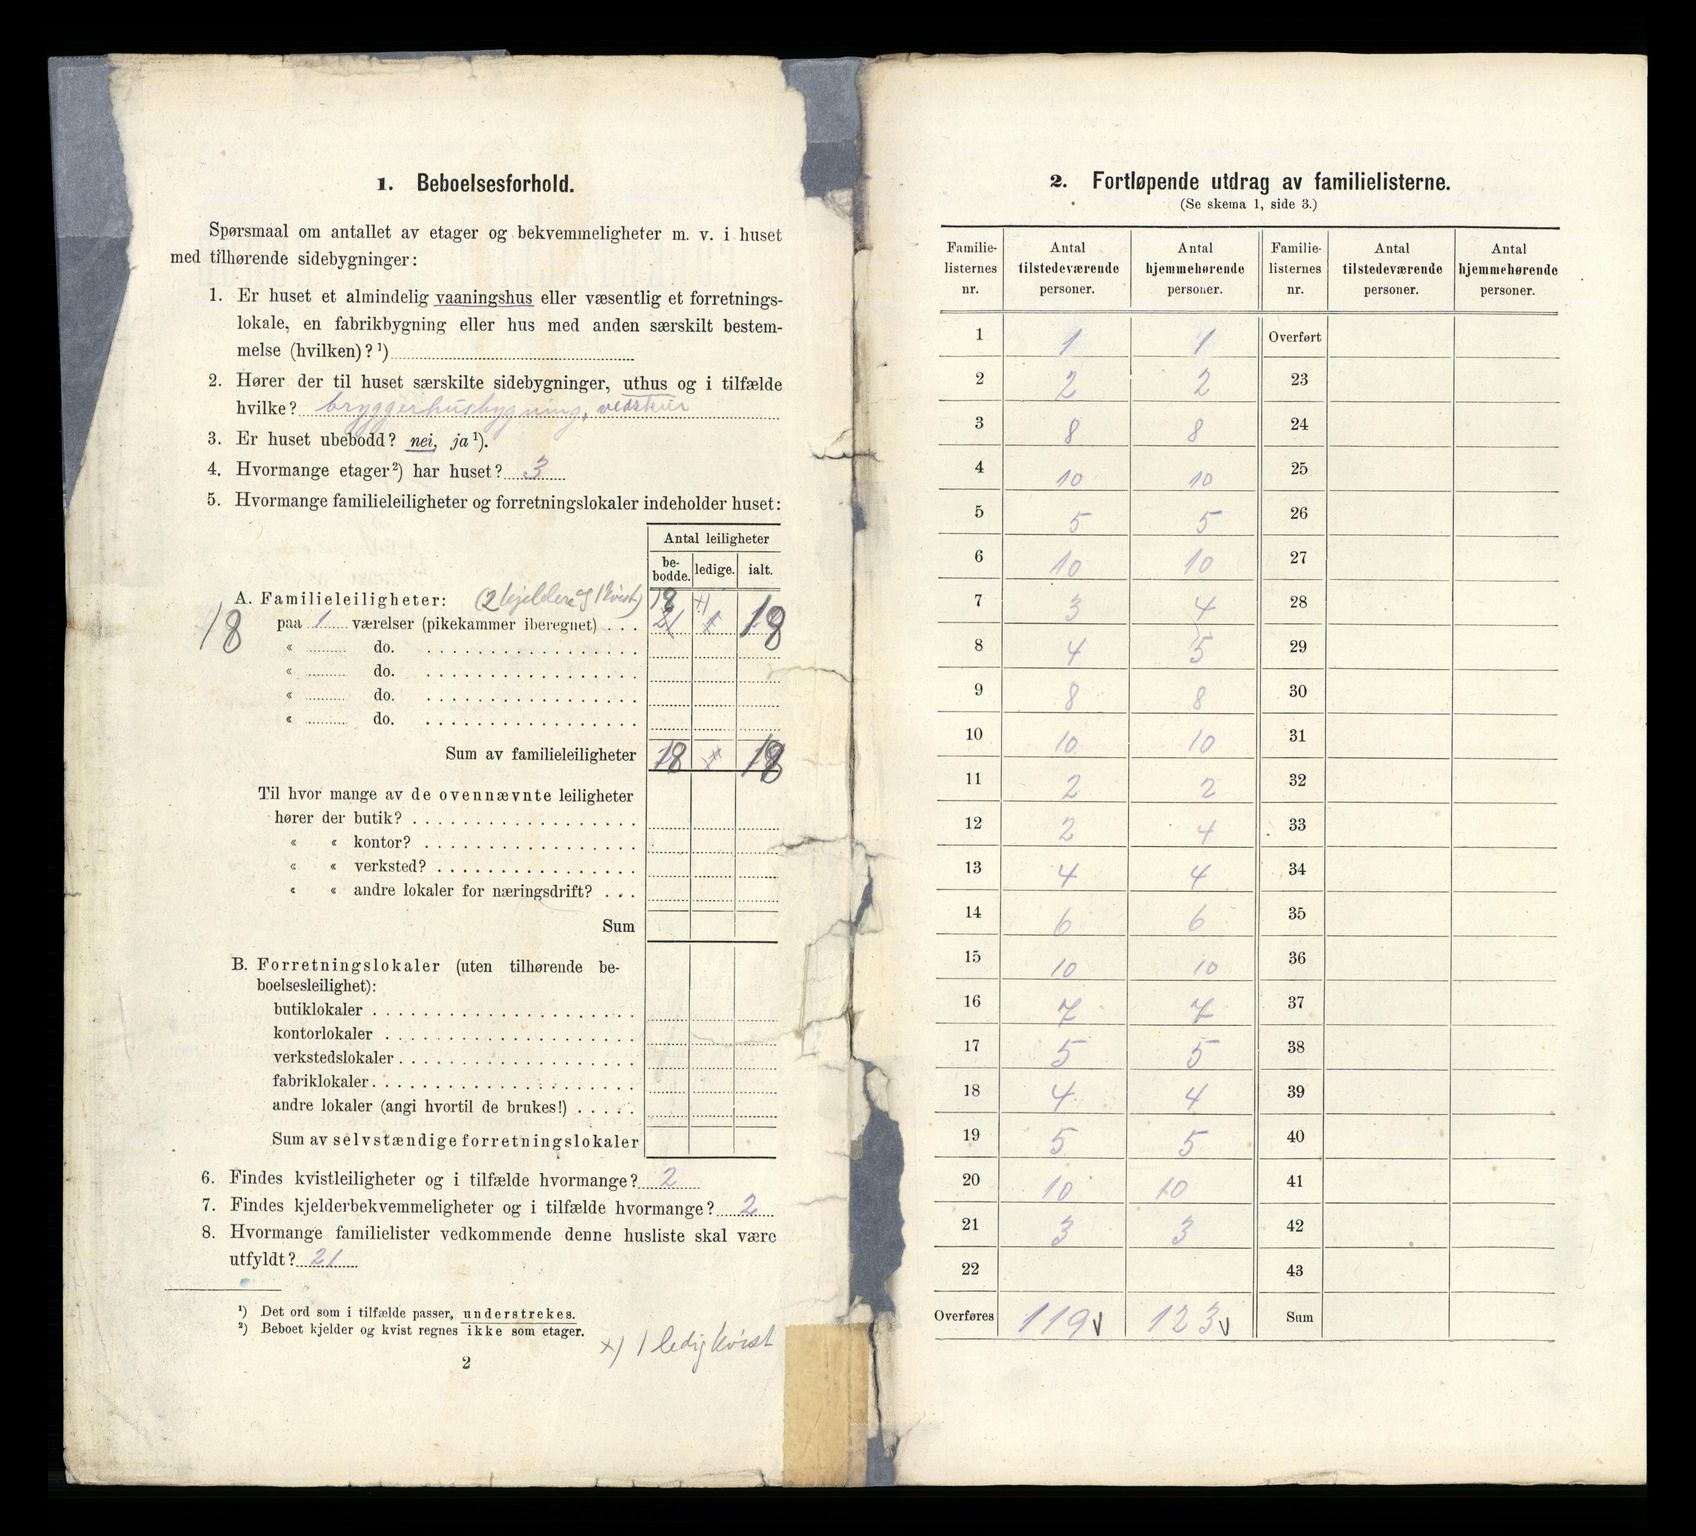 1. Beboelsesforhold.
Spørsmaal om antallet av etager og bekvemmeligheter m. v. i huset
med tilhørende sidebygninger:
1. Er huset et almindelig vaaningshus eller væsentlig et forretnings-
lokale, en fabrikbygning eller hus med anden særskilt bestem-
melse (hvilken)? ¹)
2. Hører der til huset særskilte sidebygninger, uthus og i tilfælde
hvilke? bryggerhusbygning, vedskur
3. Er huset ubebodd? nei, ja ¹).
4. Hvormange etager ²) har huset? 3
5. Hvormange familieleiligheter og forretningslokaler indeholder huset:
Antal leiligheter
be-
bodde. ledige. ialt.
A. Familieleiligheter: (2 kjeldere og 1 kvist) 18 x)
18 paa 1 værelser (pikekammer iberegnet) . . . 21 1 18
« do.
« do.
« do.
« do.
Sum av familieleiligheter 18 18
Til hvor mange av de ovennævnte leiligheter
hører der butik?
« « kontor?
« « verksted?
« « andre lokaler for næringsdrift?
Sum
B. Forretningslokaler (uten tilhørende be-
boelsesleilighet):
butiklokaler
kontorlokaler
verkstedslokaler
fabriklokaler
andre lokaler (angi hvortil de brukes!)
Sum av selvstændige forretningslokaler
6. Findes kvistleiligheter og i tilfælde hvormange? 2
7. Findes kjelderbekvemmeligheter og i tilfælde hvormange? 2
8. Hvormange familielister vedkommende denne husliste skal være
utfyldt? 21
¹) Det ord som i tilfælde passer, understrekes.
²) Beboet kjelder og kvist regnes ikke som etager.
x) 1 ledig kvist
2
2. Fortløpende utdrag av familielisterne.
(Se skema 1, side 3.)
Familie- Antal Antal Familie- Antal Antal
listernes tilstedeværende hjemmehørende listernes tilstedeværende hjemmehørende
nr. personer. personer. nr. personer. personer.
1 1 1 Overført
2 2 2 23
3 8 8 24
4 10 10 25
5 5 5 26
6 10 10 27
7 3 4 28
8 4 5 29
9 8 8 30
10 10 10 31
11 2 2 32
12 2 4 33
13 4 4 34
14 6 6 35
15 10 10 36
16 7 7 37
17 5 5 38
18 4 4 39
19 5 5 40
20 10 10 41
21 3 3 42
22 43
Overføres 119 v 123 v Sum